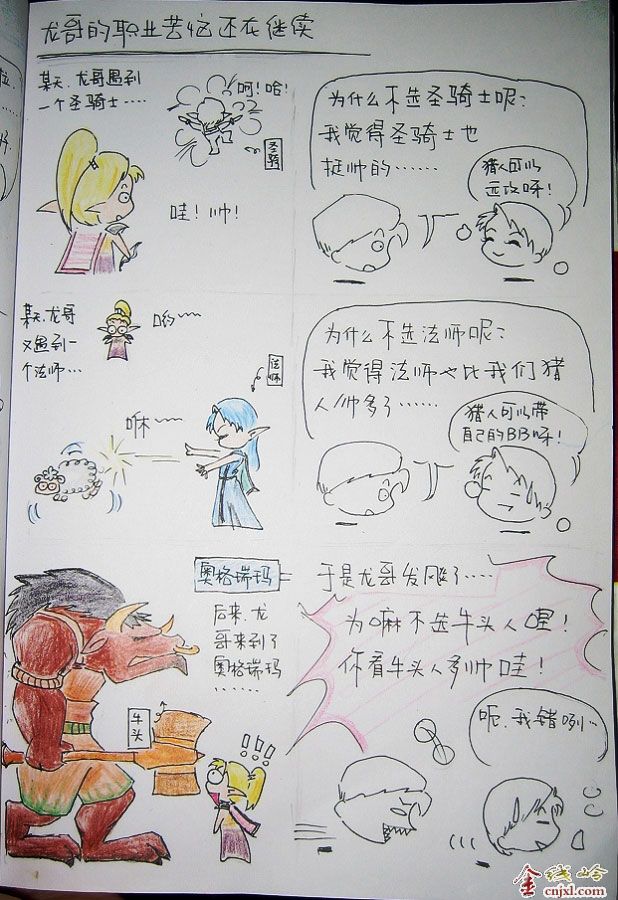 龙哥的职业苦恼还在继续
某天,龙哥遇到
一个圣骑士……
呵!哈!
圣骑
哇!帅!
为什么不选圣骑士呢?
我觉得圣骑士也
挺帅的……
猎人可以
远攻呀!
某天,龙哥
又遇到一
个法师…
哟~~
法师
咻~~
为什么不选法师呢?
我觉得法师也比我们猎
人帅多了……
猎人可以带
自己的BB呀!
奥格瑞玛
后来,龙
哥来到了
奥格瑞玛
……
牛头
!!!
于是龙哥发飚了……
为嘛不选牛头人哩!
你看牛头人多帅哇!
呃,我错咧…
金线岭
cnjxl.com